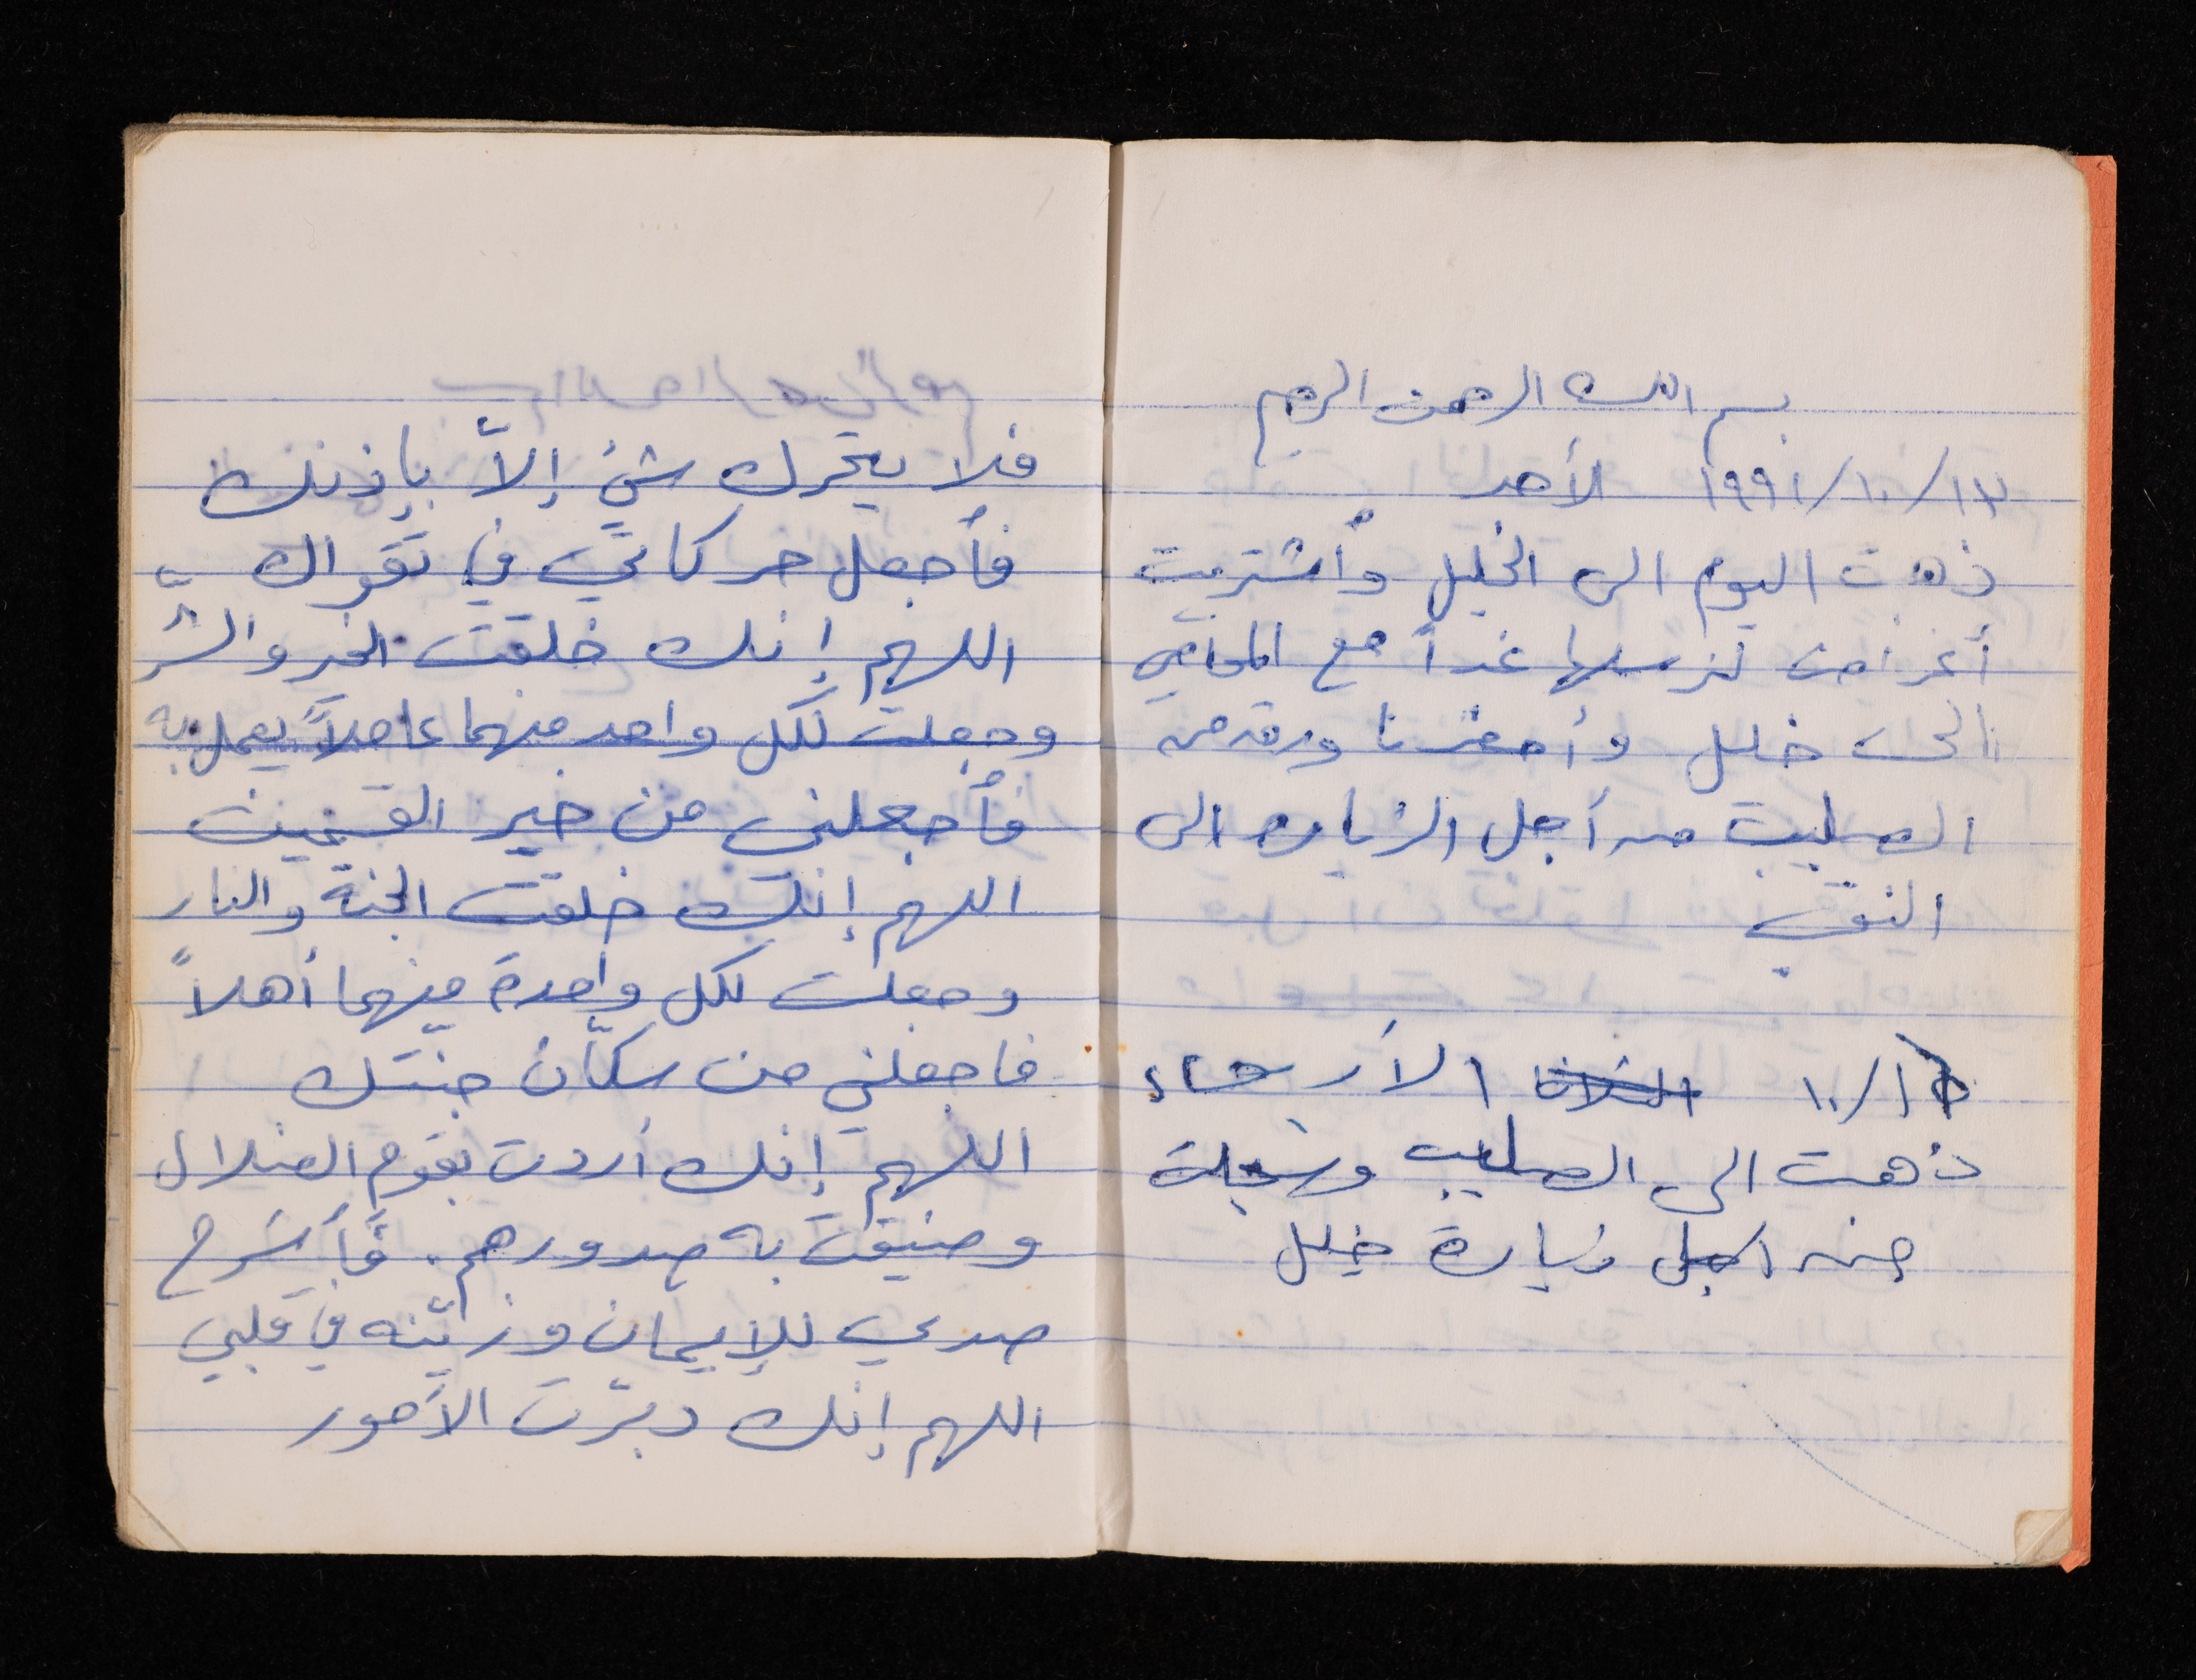 بسم الله الرحمن الرحيم
١٣/١٠/١٩٩١ الأحد
ذهبت اليوم الى الخليل وأشتريت
أغراض لنرسلها غداً مع المحامي
الى خليل وأحضرنا ورقة من
الصليب من أجل الزيارة الى
النقب
١٦/١٠ الثلاثا الأربعاء
ذهبت الى الصليب وسجلت
من اجل زيارة خليل
فلا يتحرك شيءٌ إلاّ بإذنك
فأجعل حركاتي في تقواك
اللهم إنك خلقت الخير والشرّ
وجعلت لكل واحد منهما عاملاً يعمل به
فأجعلني من خير القسمين
اللهم إنك خلقت الجنة والنار
وجعلت لكل واحدة منهما أهلاً
فاجعلني من سكّان جنتك
اللهم إنك أردت بقوم الضلال
وضيقت به صدورهم. فأشرح
صدري للإيمان وزيّنه في قلبي
اللهم إنك دبّرت الأمور